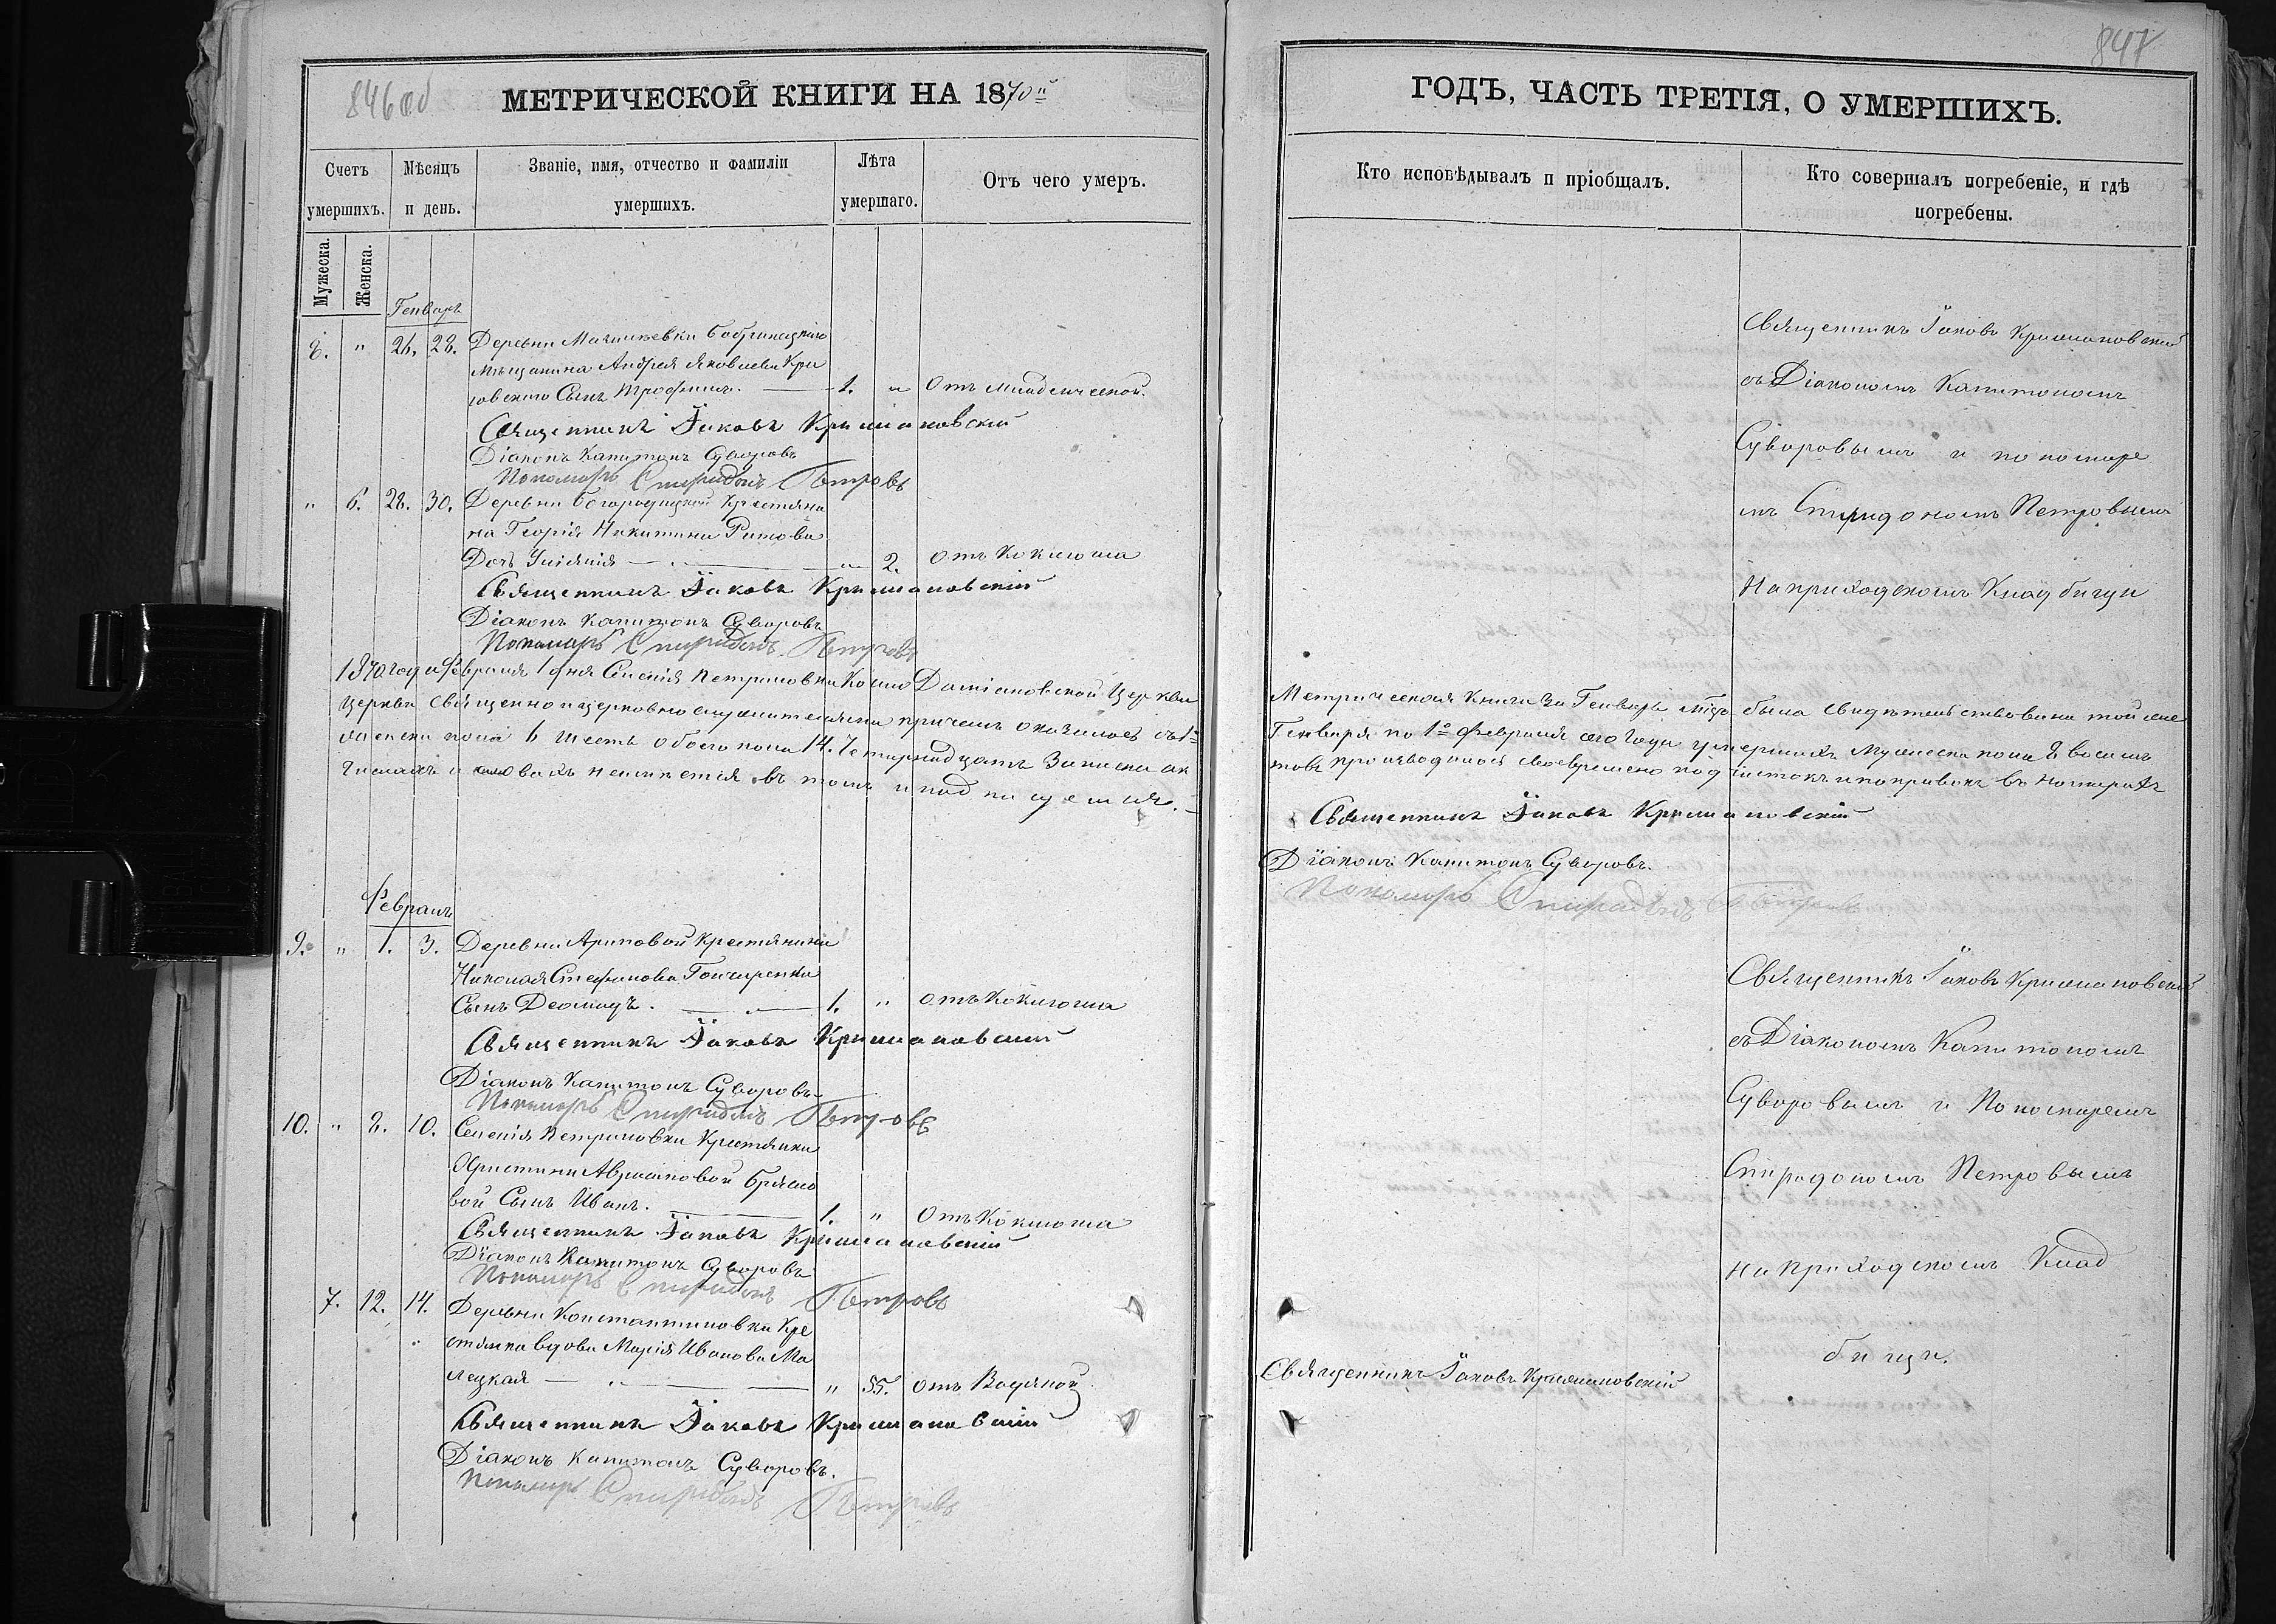 846об
МЕТРИЧЕСКОЙ КНИГИ НА 1870й
Счетъ умершихъ.
Мѣсяцъ и день.
Званіе, имя, отчество и фамиліи умершихъ.
Лѣта умершаго.
Отъ чего умеръ.
Мужеска.
Женска.
Генварь
8. " 26. 28. Деревни Бобринецкаго
мѣщанина Андрея Яковлева Кри
совскаго Сынъ Трофимъ. 1. " Отъ младенческой.
Священникъ Іаковъ Крижановскій
Діаконъ Капитонъ Суворовъ
Пономарь Спиридонъ Петровъ
" 6. 28. 30. Деревни Богородицкой Крестяни
на Георгія Никитина Ритова
Дочь " 2. отъ Коклюша
Священникъ Іаковъ Крижановскій
Діаконъ Капитонъ Суворовъ
Пономарь Спиридонъ Петровъ
1870 года Февраля 1 дня Селенія Петриковки Космо Даміановской Церкви
Церкви священно и церковно служителями причемъ оказалось съ 1го
женска пола 6 шесть обоего пола 14. Четырнадцать Записка ак
числахъ и словахъ неимеется въ томъ и подпи
Февраль
9. " 1. 3. Деревни Ариповой Крестянина
Николая Стефанова Гончаренка
Сынъ Деомидъ. 1. " отъ Коклюша
Священникъ Іаковъ Крижановскій
Діаконъ Капитонъ Суворовъ
Пономарь Спиридонъ Петровъ
10. " 8. 10. Селенія Петриковки Крестянки
Христины Аврамовой
вой Сынъ Иванъ. 1. " Отъ Коклюша
Священникъ Іаковъ Крижановскій
Діаконъ Капитонъ Суворовъ
Пономарь Спиридонъ Петровъ
7. 12. 14. Деревни Константиновки Кре
стянка вдова Марія Иванова Ма
лецкая " 55. отъ Водяной
Священникъ Іаковъ Крижановскій
Діаконъ Капитонъ Суворовъ.
Пономарь Спиридонъ Петровъ
847
ГОДЪ, ЧАСТЬ ТРЕТІЯ, О УМЕРШИХЪ.
Кто исповѣдывалъ и пріобщалъ.
Кто совершалъ погребеніе, и гдѣ погребены.
Священникъ Іаковъ Крижановскій
съ Діакономъ Капитономъ
Суворовымъ и пономаре
мъ Спиридономъ Петровымъ
На приходскомъ Кладбищи
Метрическая Книга За Генварь мцъ была свидѣтельствована той же
Генваря по 1е Февраля сего года умершихъ Мужеска пола 8 восемь
товъ производилась своевремено подчистокъ и поправокъ въ номерахъ
Священникъ Іаковъ Крижановскій
Діаконъ Капитонъ Суворовъ.
Пономарь Спиридонъ Петровъ
Священникъ Іаковъ Крижановскій
съ Діакономъ Капитономъ
Суворовымъ и Пономаремъ
Спиридономъ Петровымъ
на приходскомъ Клад
бищи.
Священникъ Іаковъ Крижановскій